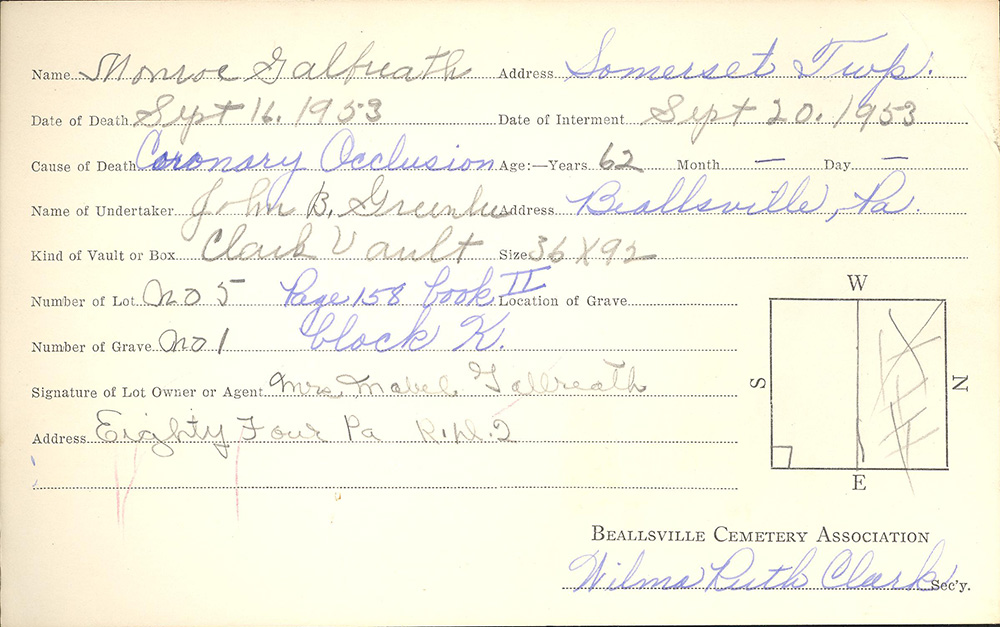 Name Monroe Galbreath Address Somerset Twp.
Date of Death Sept 16. 1953 Date of Interment Sept 20. 1953
Cause of Death Coronary Occlusion Age:—Years 62 Month — Day —
Name of Undertaker John B. Greenlee Address Beallsville, Pa.
Kind of Vault or Box Clark Vault Size 36 X 92
Number of Lot No 5 Page 158 book II Location of Grave
Number of Grave No 1 block K.
Signature of Lot Owner or Agent Mrs. Mabel Galbreath
Address Eighty Four Pa R.D.2
W
S
N
E
BEALLSVILLE CEMETERY ASSOCIATION
Wilma Ruth Clark Sec'y.